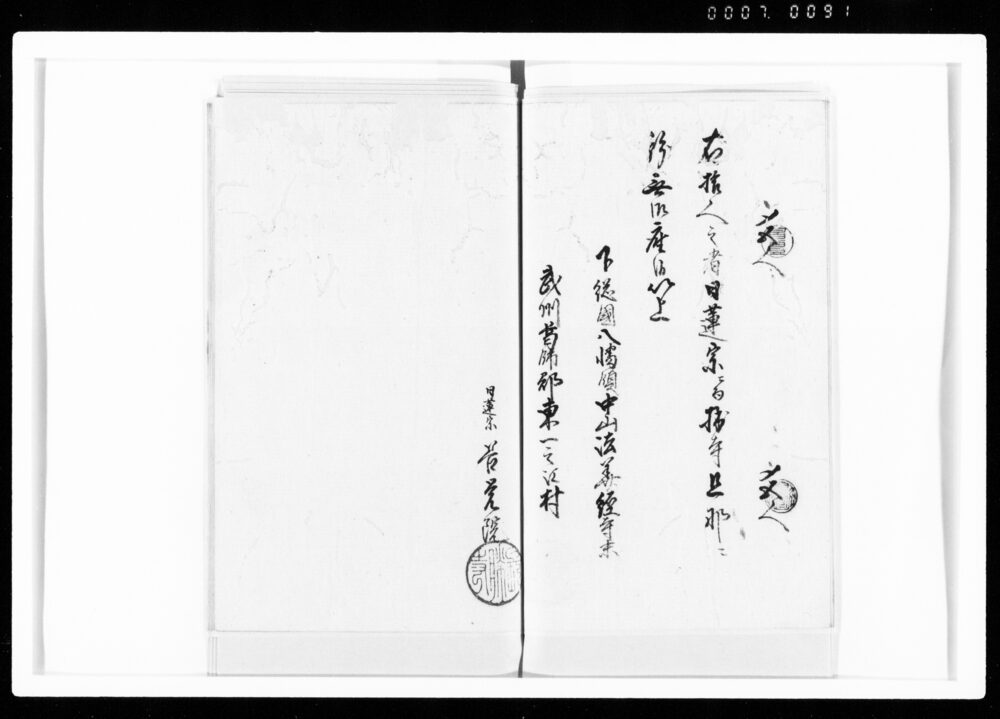 0007 0091
女人
女人
右拾人之者日蓮宗ニ而拙寺旦那ニ
紛無御座候以上
下総國八幡領中山法華経寺末
武州葛飾郡東一之江村
日蓮宗
覚院